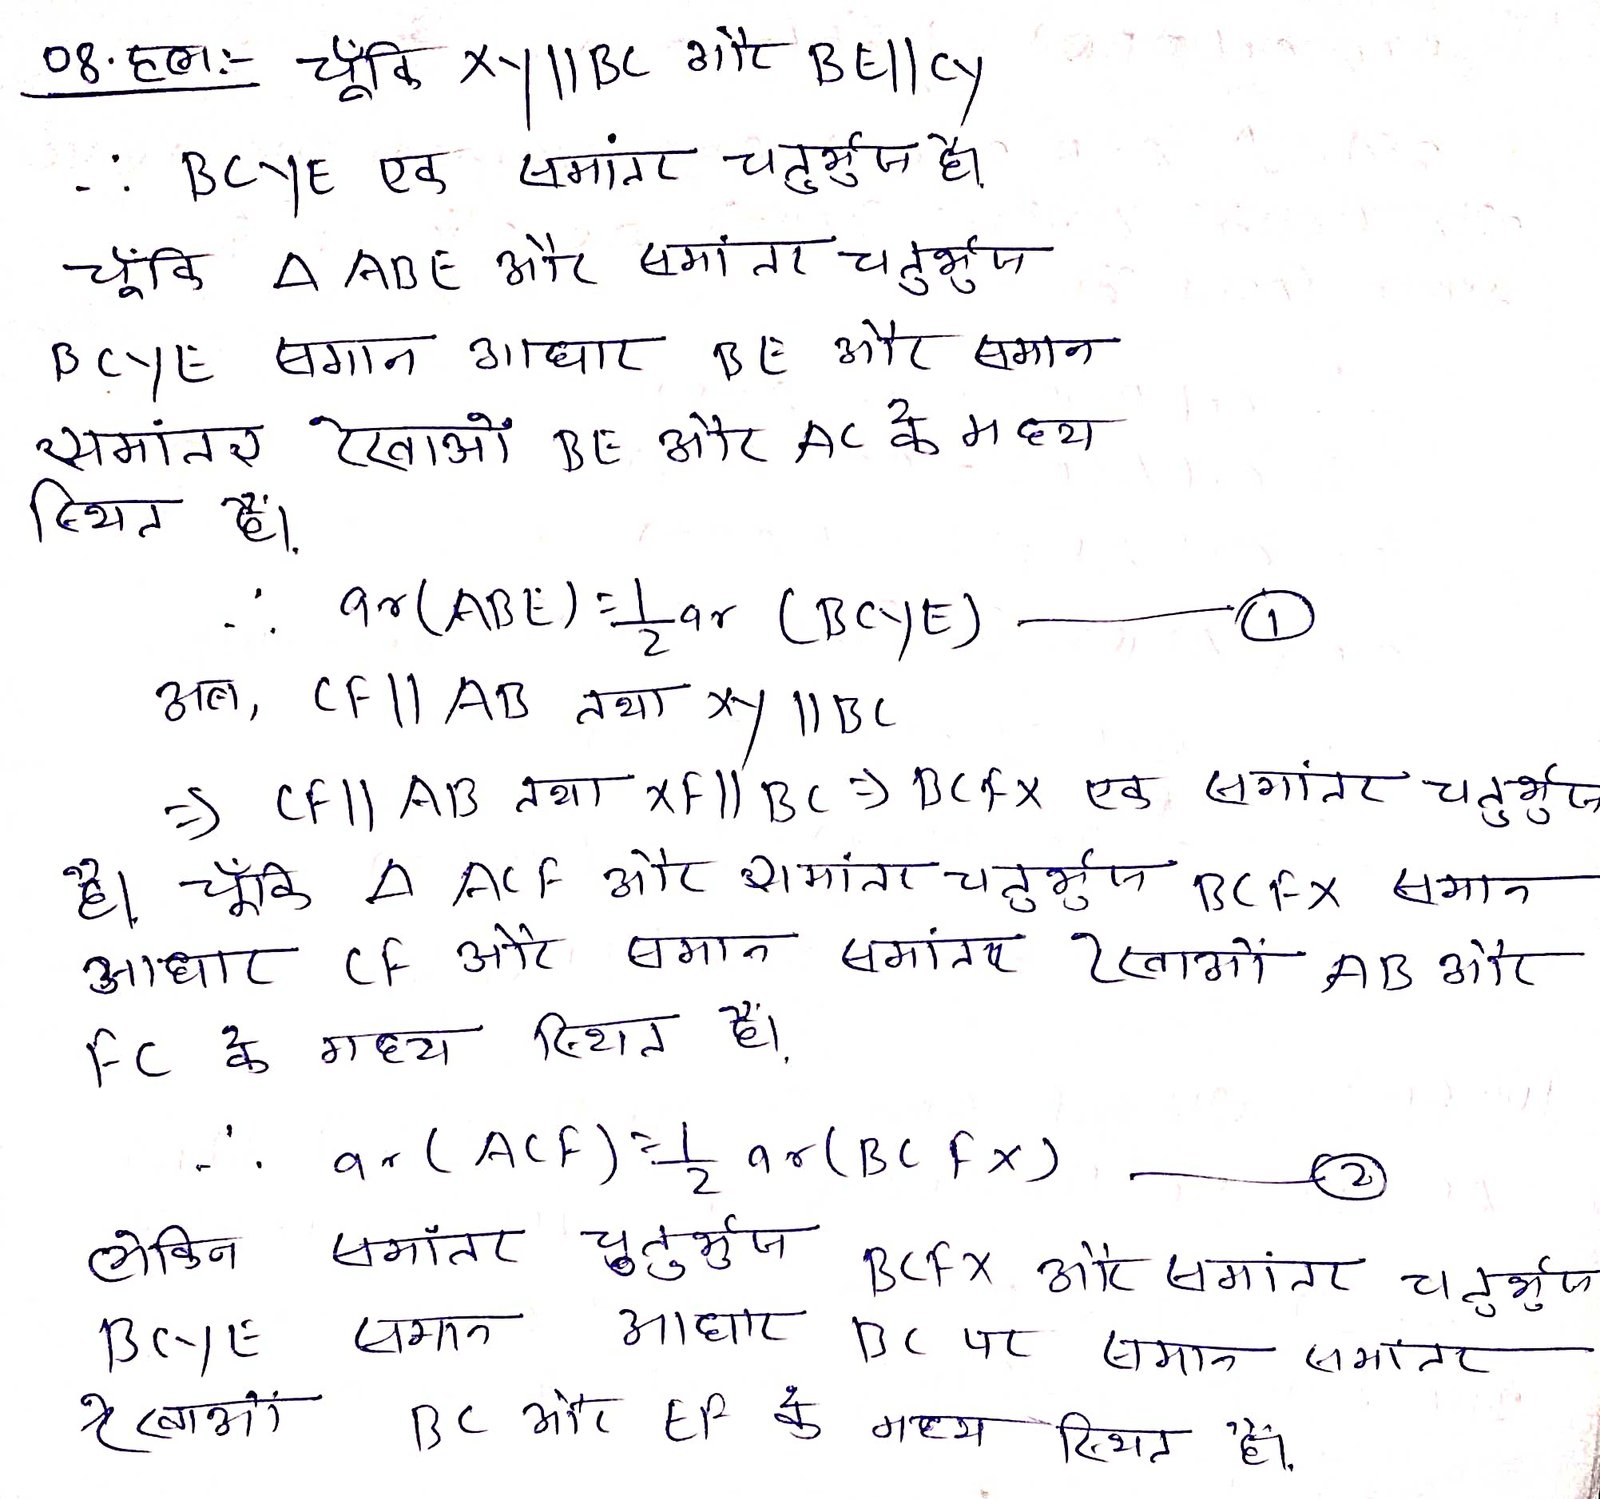 08. हल:- चूँकि XY||BC और BE||CY
∴ BCYE एक समांतर चतुर्भुज है।
चूँकि Δ ABE और समांतर चतुर्भुज
BCYE समान आधार BE और समान
समांतर रेखाओं BE और AC के मध्य
स्थित हैं।
∴ ar(ABE)=1/2 ar (BCYE) ——— ①
अब, CF|| AB तथा XY ||BC
⇒ CF|| AB तथा XF|| BC ⇒ BCFX एक समांतर चतुर्भुज
है। चूँकि Δ ACF और समांतर चतुर्भुज BCFX समान
आधार CF और समान समांतर रेखाओं AB और
FC के मध्य स्थित हैं।
∴ ar( ACF)=1/2 ar(BCFX) ——— ②
लेकिन समांतर चतुर्भुज BCFX और समांतर चतुर्भुज
BCYE समान आधार BC पर समान समांतर
रेखाओं BC और EF के मध्य स्थित हैं।